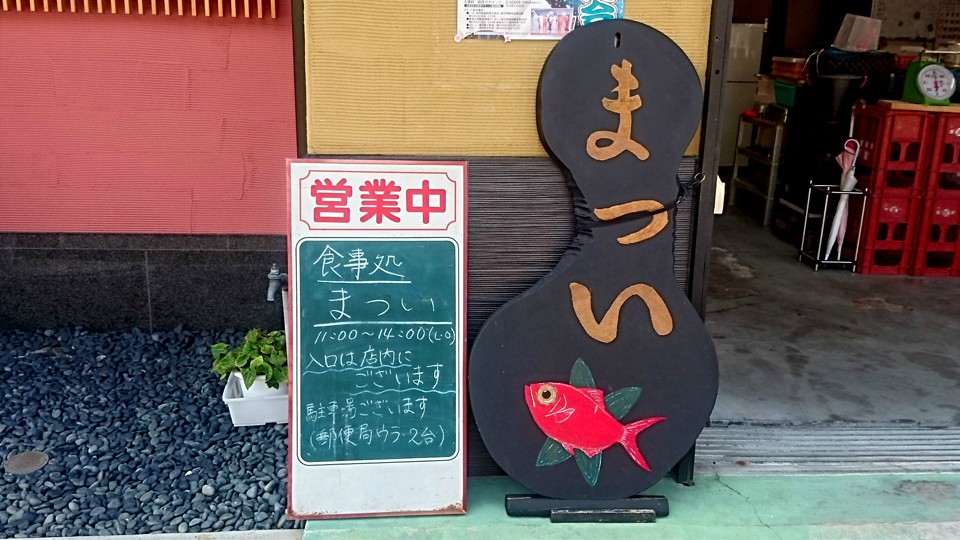 営業中
食事処
まつい
11:00〜14:00(L.O)
入口は店内に
ございます
駐車場ございます
(郵便局ウラ・2台)
まつい